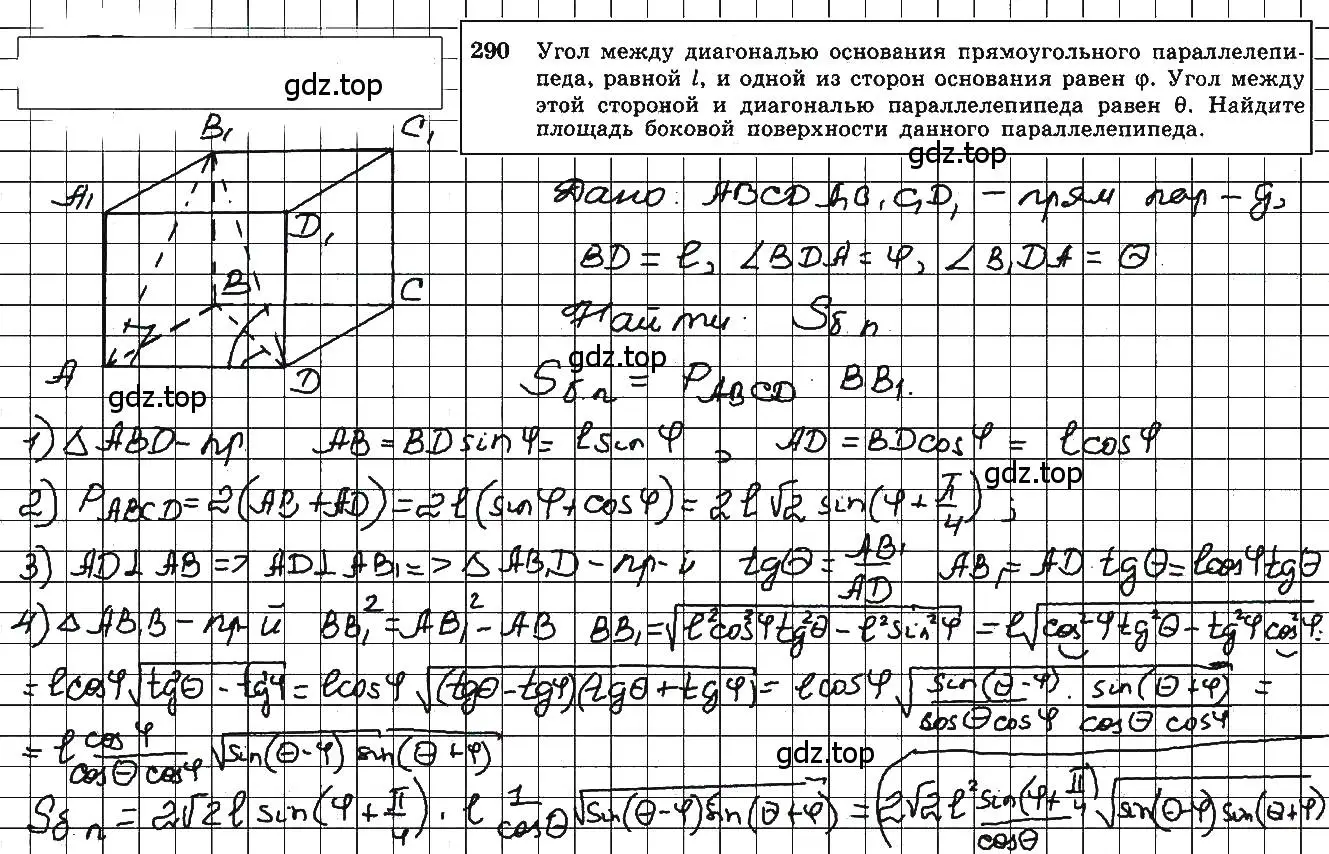 290 Угол между диагональю основания прямоугольного параллелепи-
педа, равной l, и одной из сторон основания равен φ. Угол между
этой стороной и диагональю параллелепипеда равен θ. Найдите
площадь боковой поверхности данного параллелепипеда.
gdz.top
gdz.top
B₁ C₁
A₁ D₁
B C
A D
gdz.top
Дано: ABCDA₁B₁C₁D₁ – прям пар – д,
BD = l, ∠BDA = φ, ∠B₁DA = θ
Найти: Sб.п
gdz.top
Sб.п = P_ABCD · BB₁.
1) △ABD – пр. AB = BD sin φ = l sin φ, AD = BD cos φ = l cos φ
gdz.top
2) P_ABCD = 2(AB + AD) = 2l(sin φ + cos φ) = 2l√2 sin(φ + π/4);
3) AD ⊥ AB => AD ⊥ AB₁ => △AB₁D – пр-й tgθ = AB₁/AD AB₁ = AD tgθ = l cos φ tgθ
4) △AB₁B – пр-й BB₁² = AB₁² - AB BB₁ = √(l²cos²φ tg²θ - l²sin²φ) = l√(cos²φ tg²θ - tg²φ cos²φ) =
= l cos φ √(tg²θ - tg²φ) = l cos φ √((tgθ - tgφ)(tgθ + tgφ)) = l cos φ √(sin(θ-φ)/(cosθ cosφ) · sin(θ+φ)/(cosθ cosφ)) =
= l cosφ/(cosθ cosφ) √(sin(θ-φ) sin(θ+φ))
gdz.top
Sб.п = 2√2 l sin(φ + π/4) · l 1/cosθ √(sin(θ-φ) sin(θ+φ)) = (2√2 l² sin(φ + π/4)/cosθ √(sin(θ-φ) sin(θ+φ))